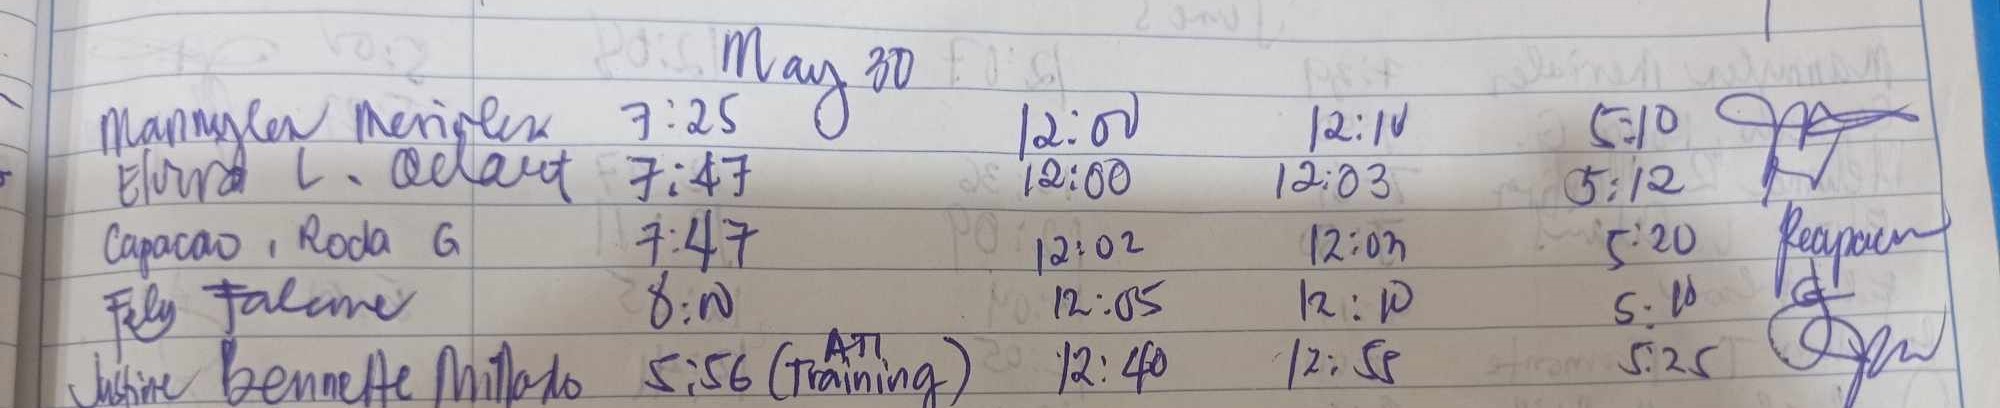 May 30
Mannylen Merigles 7:25 12:00 12:10 5:10
L. Odaut 7:47 12:00 12:03 5:12
Capacao, Roda G 7:47 12:02 12:03 5:20
Fely Talame 8:00 12:05 12:10 5:10
Justine Bennette Millado 5:56 (ATI Training) 12:40 12:55 5:25